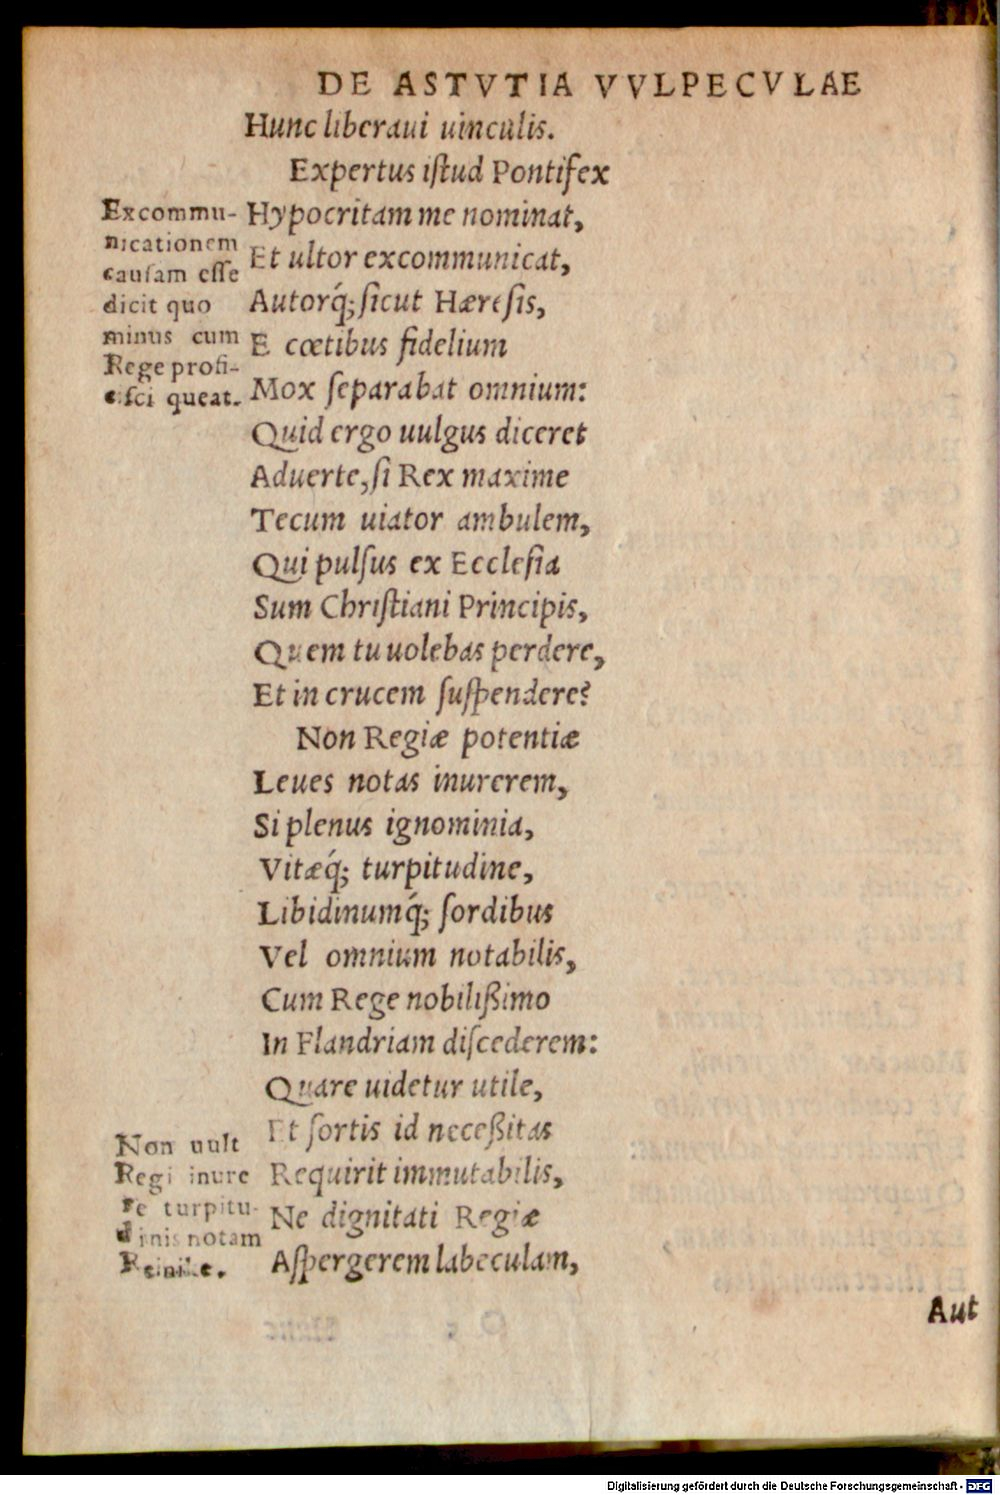 DE ASTVTIA VVLPECVLAE
Hunc liberaui uinculis.
Expertus iſtud Pontifex
Hypocritam me nominat,
Et ultor excommunicat,
Autorq́; ſicut Hæreſis,
E cœtibus fidelium
Mox ſeparabat omnium:
Quid ergo uulgus diceret
Aduerte, ſi Rex maxime
Tecum uiator ambulem,
Qui pulſus ex Eccleſia
Sum Chriſtiani Principis,
Quem tu uolebas perdere,
Et in crucem ſuſpendere?
Non Regiæ potentiæ
Leues notas inurerem,
Si plenus ignominia,
Vitæq́; turpitudine,
Libidinumq́; ſordibus
Vel omnium notabilis,
Cum Rege nobilißimo
In Flandriam diſcederem:
Quare uidetur utile,
Et ſortis id neceßitas
Requirit immutabilis,
Ne dignitati Regiæ
Aſpergerem labeculam,
Aut
Excommu-
nicationem
cauſam eſſe
dicit quo
minus cum
Rege profi-
ciſci queat.
Non uult
Regi inure
re turpitu-
dinis notam
Reinike.
Digitalisierung gefördert durch die Deutsche Forschungsgemeinschaft - DFG